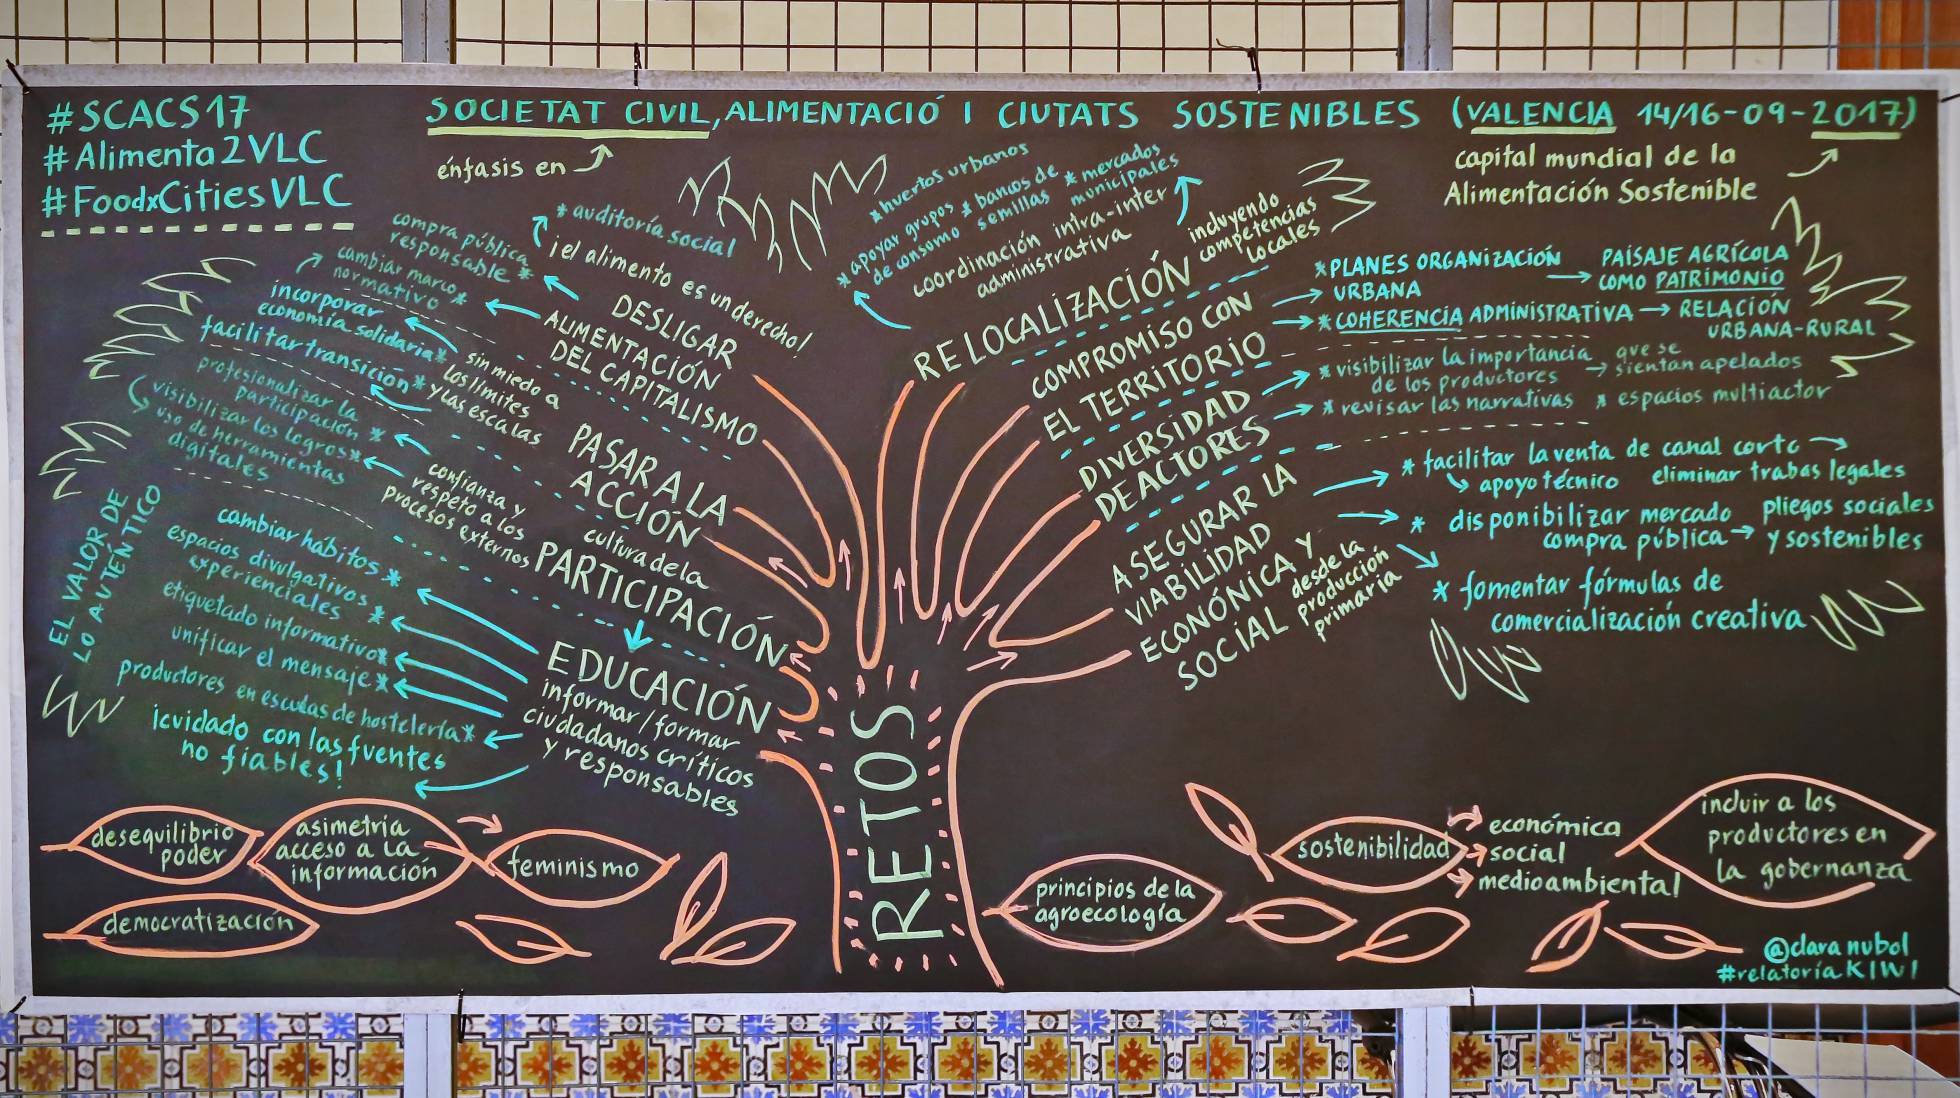 #SCACS17
#Alimenta2VLC
#FoodxCitiesVLC
SOCIETAT CIVIL, ALIMENTACIÓ I CIUTATS SOSTENIBLES (VALENCIA 14/16-09-2017)
énfasis en
capital mundial de la
Alimentación Sostenible
* auditoría social
¡el alimento es un derecho!
DESLIGAR
ALIMENTACIÓN
DEL CAPITALISMO
compra pública
responsable *
cambiar marco *
normativo
incorporar
economía solidaria *
facilitar transición *
sin miedo a
los límites
y las escalas
PASAR A LA
ACCIÓN
profesionalizar la
participación *
visibilizar los logros *
uso de herramientas
digitales
confianza y
respeto a los
procesos externos
cultura de la
PARTICIPACIÓN
EL VALOR DE
LO AUTÉNTICO
cambiar hábitos *
espacios divulgativos *
experienciales
etiquetado informativo *
unificar el mensaje *
productores en escuelas de hostelería *
¡cuidado con las fuentes
no fiables!
EDUCACIÓN
informar/formar
ciudadanos críticos
y responsables
RETOS
* huertos urbanos
* apoyar grupos
de consumo
* bancos de
semillas
* mercados
municipales
coordinación intra-inter
administrativa
RELOCALIZACIÓN
incluyendo
competencias
locales
COMPROMISO CON
EL TERRITORIO
* PLANES ORGANIZACIÓN
URBANA
PAISAJE AGRÍCOLA
COMO PATRIMONIO
* COHERENCIA ADMINISTRATIVA → RELACIÓN
URBANA-RURAL
DIVERSIDAD
DE ACTORES
* visibilizar la importancia
de los productores
que se
sientan apelados
* revisar las narrativas * espacios multiactor
ASEGURAR LA
VIABILIDAD
ECONÓNICA Y
SOCIAL
desde la
producción
primaria
* facilitar la venta de canal corto
apoyo técnico eliminar trabas legales
* disponibilizar mercado
compra pública
pliegos sociales
y sostenibles
* fomentar fórmulas de
comercialización creativa
desequilibrio
poder
asimetría
acceso a la
información
feminismo
democratización
principios de la
agroecología
sostenibilidad
económica
social
medioambiental
incluir a los
productores en
la gobernanza
@clara nubol
#relatoríaKIWI